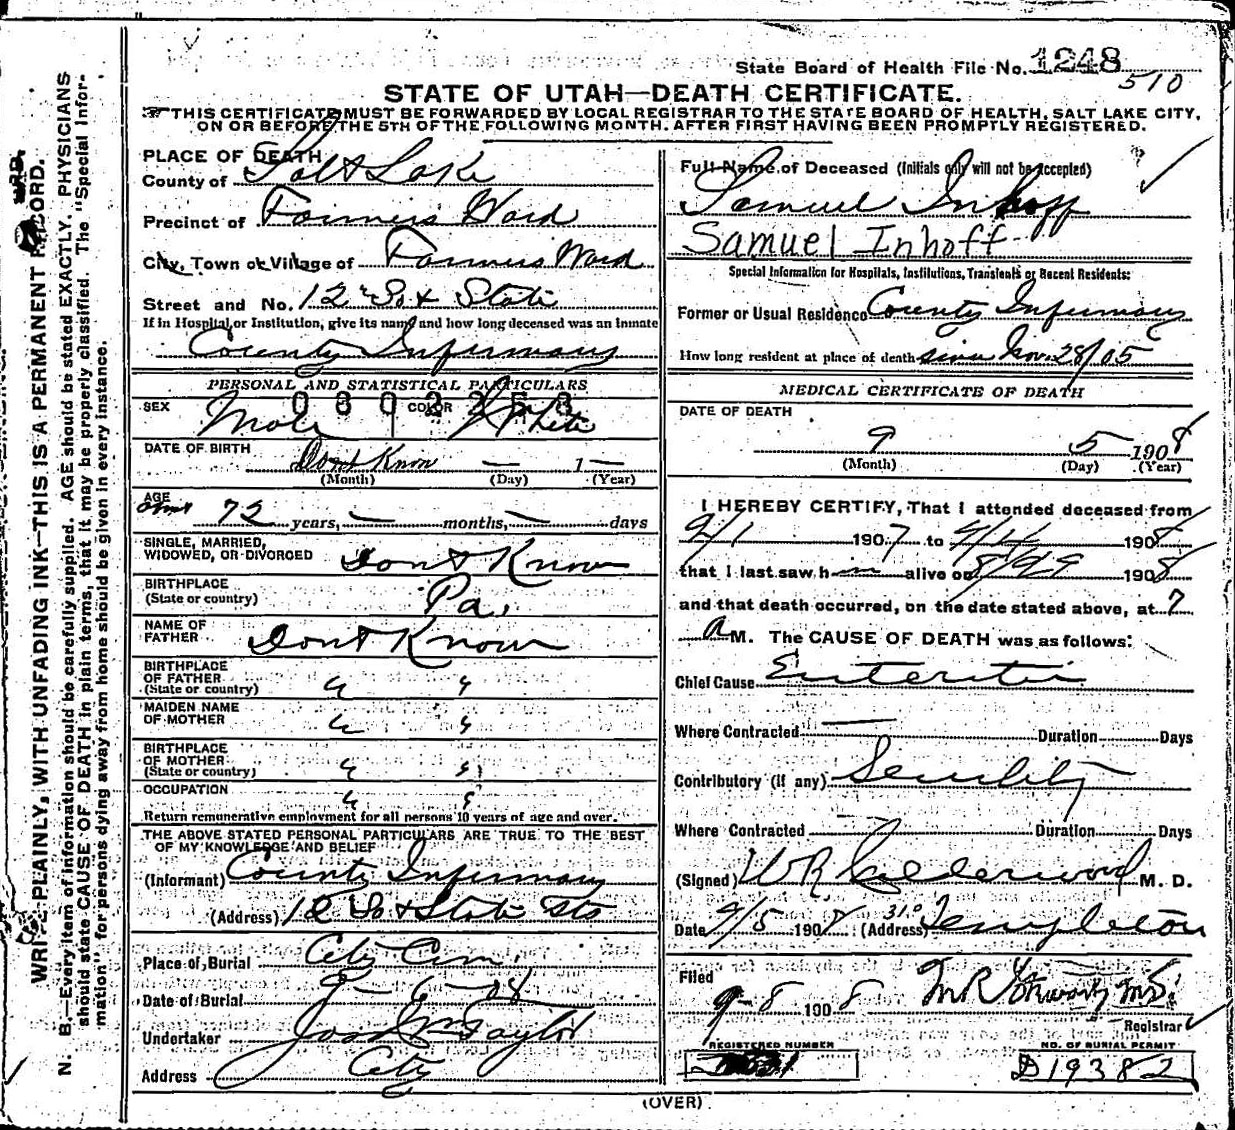 State Board of Health File No. 1248
510
STATE OF UTAH—DEATH CERTIFICATE.
THIS CERTIFICATE MUST BE FORWARDED BY LOCAL REGISTRAR TO THE STATE BOARD OF HEALTH, SALT LAKE CITY,
ON OR BEFORE THE 5TH OF THE FOLLOWING MONTH. AFTER FIRST HAVING BEEN PROMPTLY REGISTERED.
PLACE OF DEATH
County of Salt Lake
Precinct of Farmers Ward
City, Town or Village of Farmers Ward
Street and No. 12 So & State
If in Hospital or Institution, give its name and how long deceased was an inmate
County Infirmary
PERSONAL AND STATISTICAL PARTICULARS
SEX Male COLOR White
DATE OF BIRTH Dont Know — 1—
(Month) (Day) (Year)
AGE
about 72 years, — months, — days
SINGLE, MARRIED,
WIDOWED, OR DIVORCED Dont Know
BIRTHPLACE
(State or country) Pa.
NAME OF
FATHER Dont Know
BIRTHPLACE
OF FATHER
(State or country) " "
MAIDEN NAME
OF MOTHER " "
BIRTHPLACE
OF MOTHER
(State or country) " "
OCCUPATION " "
Return remunerative employment for all persons 10 years of age and over.
THE ABOVE STATED PERSONAL PARTICULARS ARE TRUE TO THE BEST
OF MY KNOWLEDGE AND BELIEF
(Informant) County Infirmary
(Address) 12 So & State Sts
Place of Burial City Cem.
Date of Burial 9-6-08
Undertaker Jos Wm Taylor
Address City
Full Name of Deceased (Initials only will not be accepted)
Samuel Inhoff
Samuel Inhoff
Special Information for Hospitals, Institutions, Transients or Recent Residents:
Former or Usual Residence County Infirmary
How long resident at place of death since Nov. 28/05
MEDICAL CERTIFICATE OF DEATH
DATE OF DEATH
9 5 1908
(Month) (Day) (Year)
I HEREBY CERTIFY, That I attended deceased from
9/1 1907 to 9/4 1908
that I last saw him alive on 8/29 1908
and that death occurred, on the date stated above, at 7
A M. The CAUSE OF DEATH was as follows:
Chief Cause Enteritis
Where Contracted Duration Days
Contributory (if any) Senility
Where Contracted Duration Days
(Signed) W R Calderwood M. D.
Date 9/5 1908 (Address) 310 Templeton
Filed
9-8 1908 M R Stewart M.D.
Registrar
REGISTERED NUMBER
NO. OF BURIAL PERMIT
D19382
(OVER)
WRITE PLAINLY, WITH UNFADING INK—THIS IS A PERMANENT RECORD.
N. B.—Every item of information should be carefully supplied. AGE should be stated EXACTLY. PHYSICIANS
should state CAUSE OF DEATH in plain terms, that it may be properly classified. The "Special Infor-
mation" for persons dying away from home should be given in every instance.